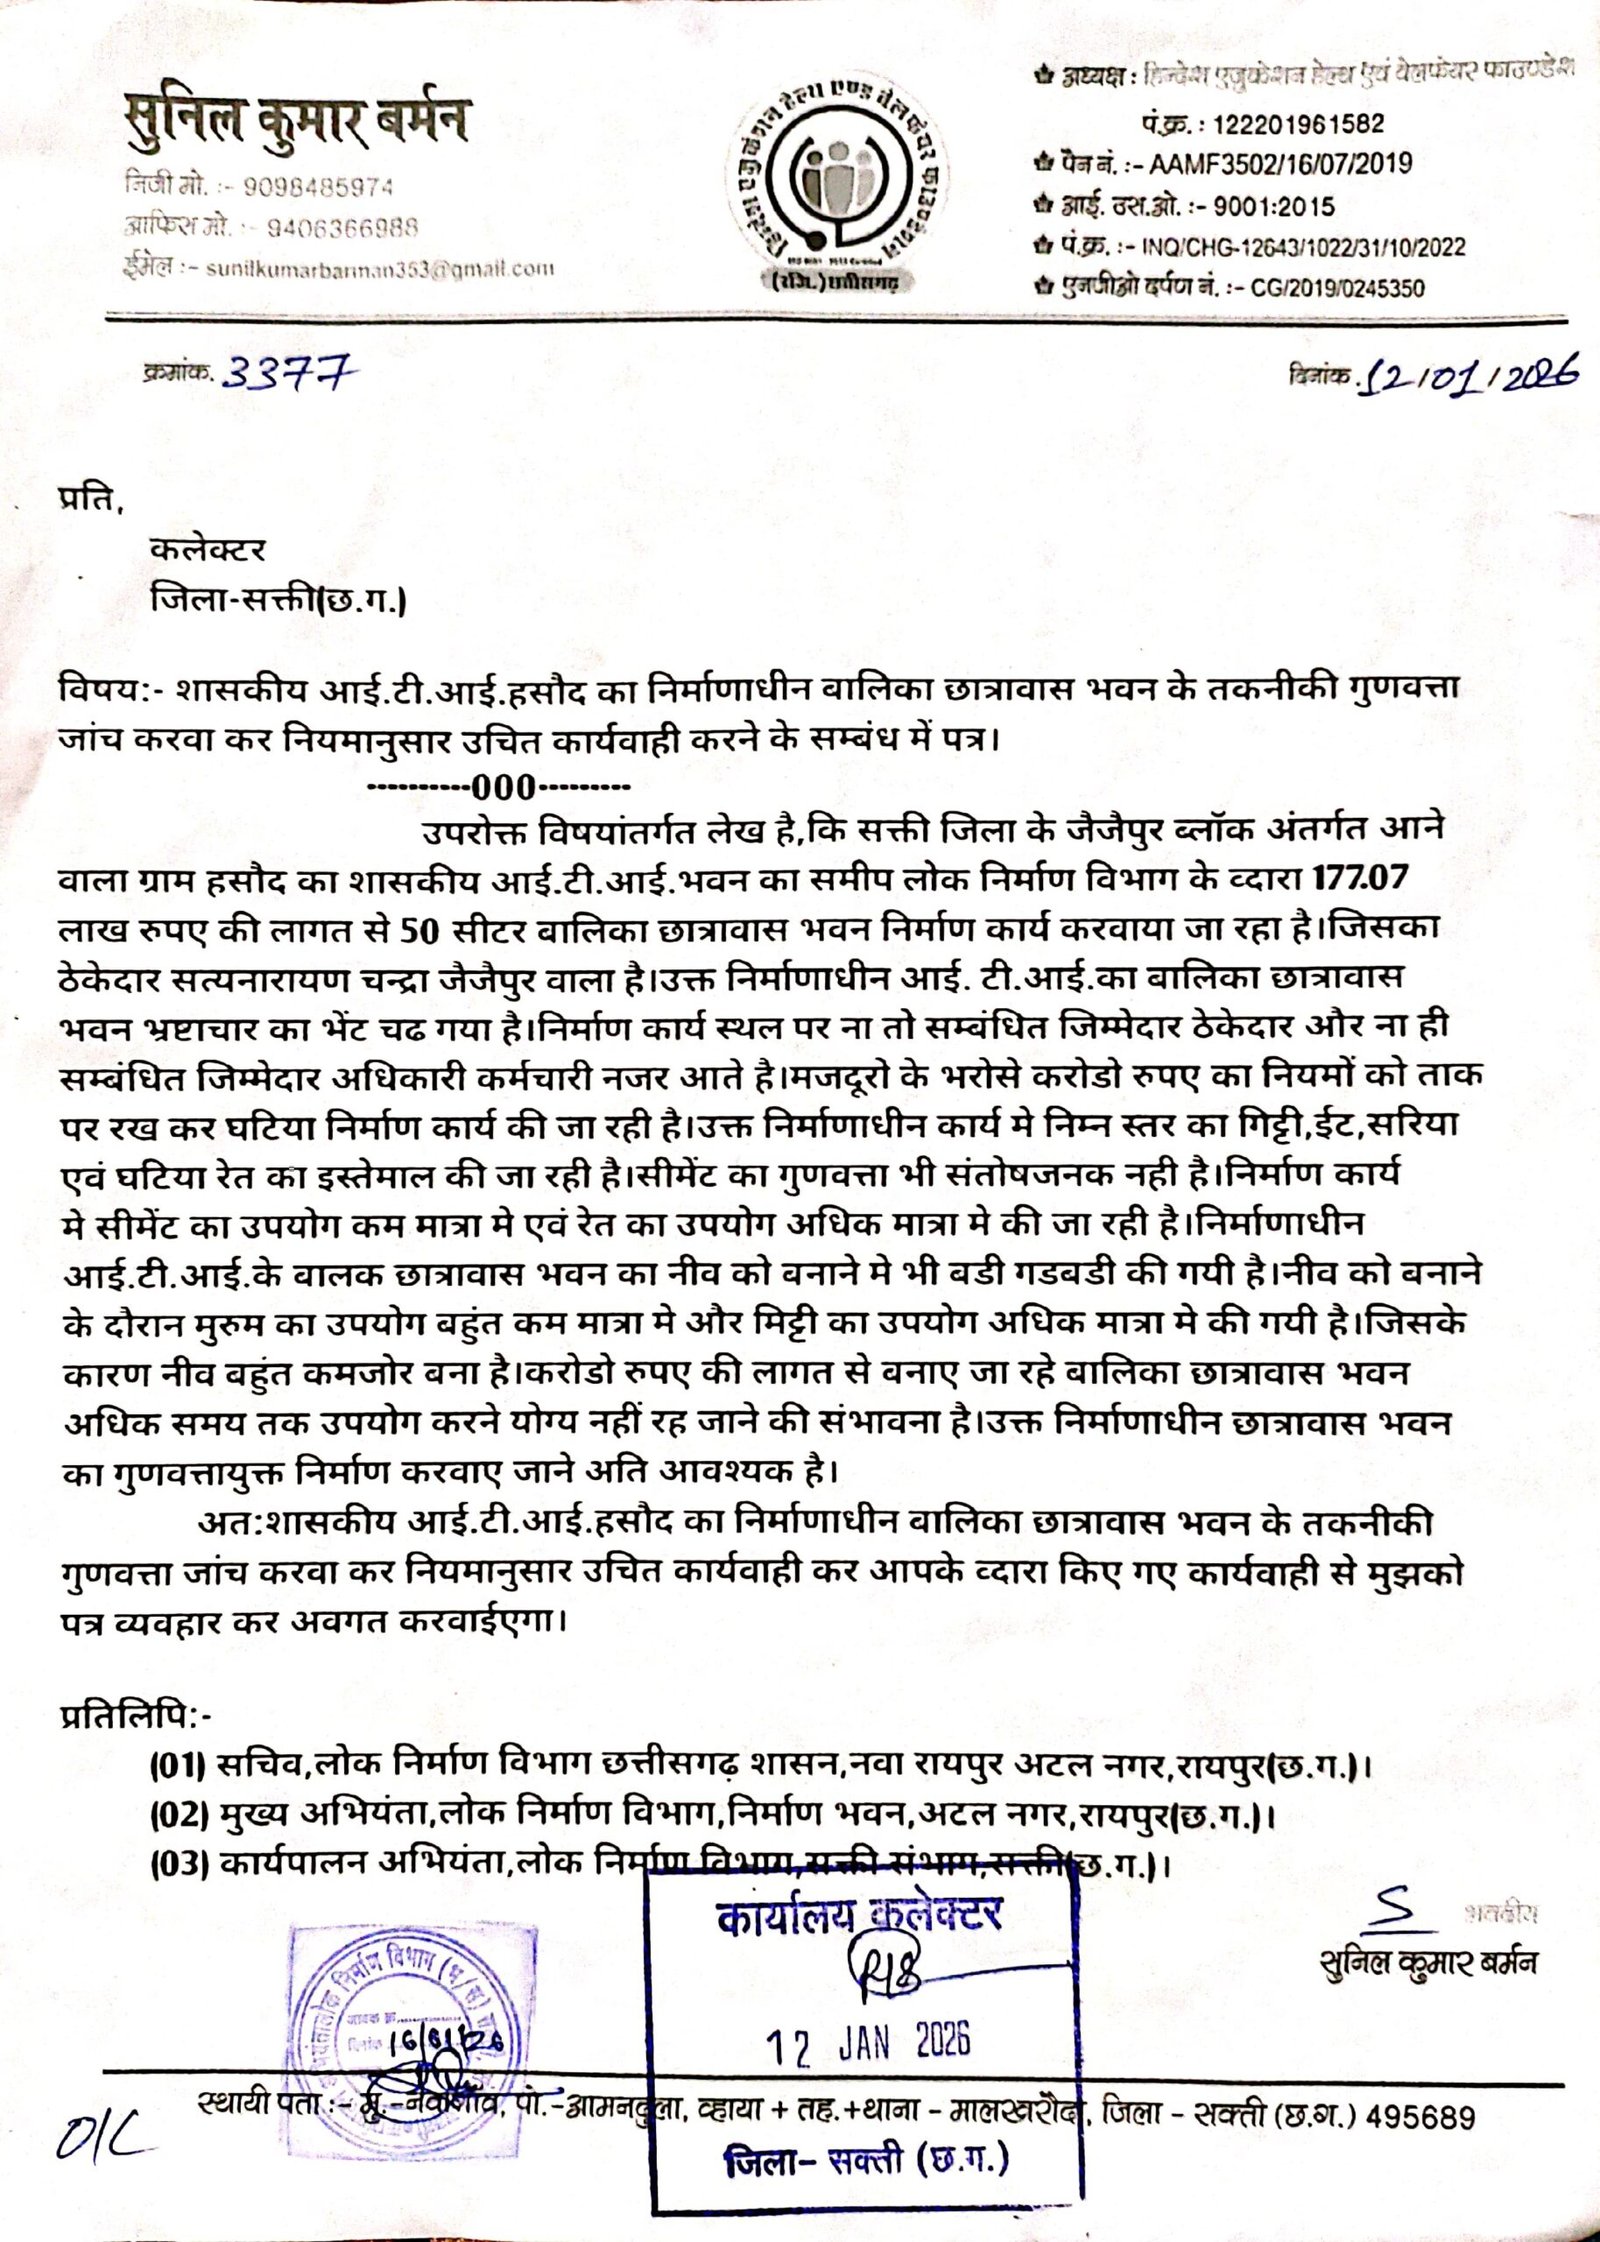 सुनिल कुमार बर्मन
निजी मो. :- 9098485974
आफिस मो. :- 9406366988
ईमेल :- sunilkumarbarman353@gmail.com
(रजि.) छत्तीसगढ़
अध्यक्ष : हिन्देश एजुकेशन हेल्थ एवं वेलफेयर फाउण्डेश
पं.क्र. : 122201961582
पैन नं. :- AAMF3502/16/07/2019
आई. उस.ओ. :- 9001:2015
पं.क्र. :- INQ/CHG-12643/1022/31/10/2022
एनजीओ दर्पण नं. :- CG/2019/0245350
क्रमांक. 3377
दिनांक. 12/01/2026
प्रति,
कलेक्टर
जिला-सक्ती(छ.ग.)
विषय:- शासकीय आई.टी.आई.हसौद का निर्माणाधीन बालिका छात्रावास भवन के तकनीकी गुणवत्ता
जांच करवा कर नियमानुसार उचित कार्यवाही करने के सम्बंध में पत्र।
----------000---------
उपरोक्त विषयांतर्गत लेख है,कि सक्ती जिला के जैजैपुर ब्लॉक अंतर्गत आने
वाला ग्राम हसौद का शासकीय आई.टी.आई.भवन का समीप लोक निर्माण विभाग के व्दारा 177.07
लाख रुपए की लागत से 50 सीटर बालिका छात्रावास भवन निर्माण कार्य करवाया जा रहा है।जिसका
ठेकेदार सत्यनारायण चन्द्रा जैजैपुर वाला है।उक्त निर्माणाधीन आई. टी.आई.का बालिका छात्रावास
भवन भ्रष्टाचार का भेंट चढ गया है।निर्माण कार्य स्थल पर ना तो सम्बंधित जिम्मेदार ठेकेदार और ना ही
सम्बंधित जिम्मेदार अधिकारी कर्मचारी नजर आते है।मजदूरो के भरोसे करोडो रुपए का नियमों को ताक
पर रख कर घटिया निर्माण कार्य की जा रही है।उक्त निर्माणाधीन कार्य मे निम्न स्तर का गिट्टी,ईट,सरिया
एवं घटिया रेत का इस्तेमाल की जा रही है।सीमेंट का गुणवत्ता भी संतोषजनक नही है।निर्माण कार्य
मे सीमेंट का उपयोग कम मात्रा मे एवं रेत का उपयोग अधिक मात्रा मे की जा रही है।निर्माणाधीन
आई.टी.आई.के बालक छात्रावास भवन का नीव को बनाने मे भी बडी गडबडी की गयी है।नीव को बनाने
के दौरान मुरुम का उपयोग बहुंत कम मात्रा मे और मिट्टी का उपयोग अधिक मात्रा मे की गयी है।जिसके
कारण नीव बहुंत कमजोर बना है।करोडो रुपए की लागत से बनाए जा रहे बालिका छात्रावास भवन
अधिक समय तक उपयोग करने योग्य नहीं रह जाने की संभावना है।उक्त निर्माणाधीन छात्रावास भवन
का गुणवत्तायुक्त निर्माण करवाए जाने अति आवश्यक है।
अत:शासकीय आई.टी.आई.हसौद का निर्माणाधीन बालिका छात्रावास भवन के तकनीकी
गुणवत्ता जांच करवा कर नियमानुसार उचित कार्यवाही कर आपके व्दारा किए गए कार्यवाही से मुझको
पत्र व्यवहार कर अवगत करवाईएगा।
प्रतिलिपि:-
(01) सचिव,लोक निर्माण विभाग छत्तीसगढ़ शासन,नवा रायपुर अटल नगर,रायपुर(छ.ग.)।
(02) मुख्य अभियंता,लोक निर्माण विभाग,निर्माण भवन,अटल नगर,रायपुर(छ.ग.)।
(03) कार्यपालन अभियंता,लोक निर्माण विभाग,सक्ती संभाग,सक्ती(छ.ग.)।
भवदीय
सुनिल कुमार बर्मन
कार्यालय कलेक्टर
12 JAN 2026
जिला- सक्ती (छ.ग.)
लोक निर्माण विभाग (भ/स)
16/01/26
स्थायी पता :- मु.-नवागाँव, पो.-आमनदुला, व्हाया + तह.+थाना - मालखरौदा, जिला - सक्ती (छ.ग.) 495689
O/C